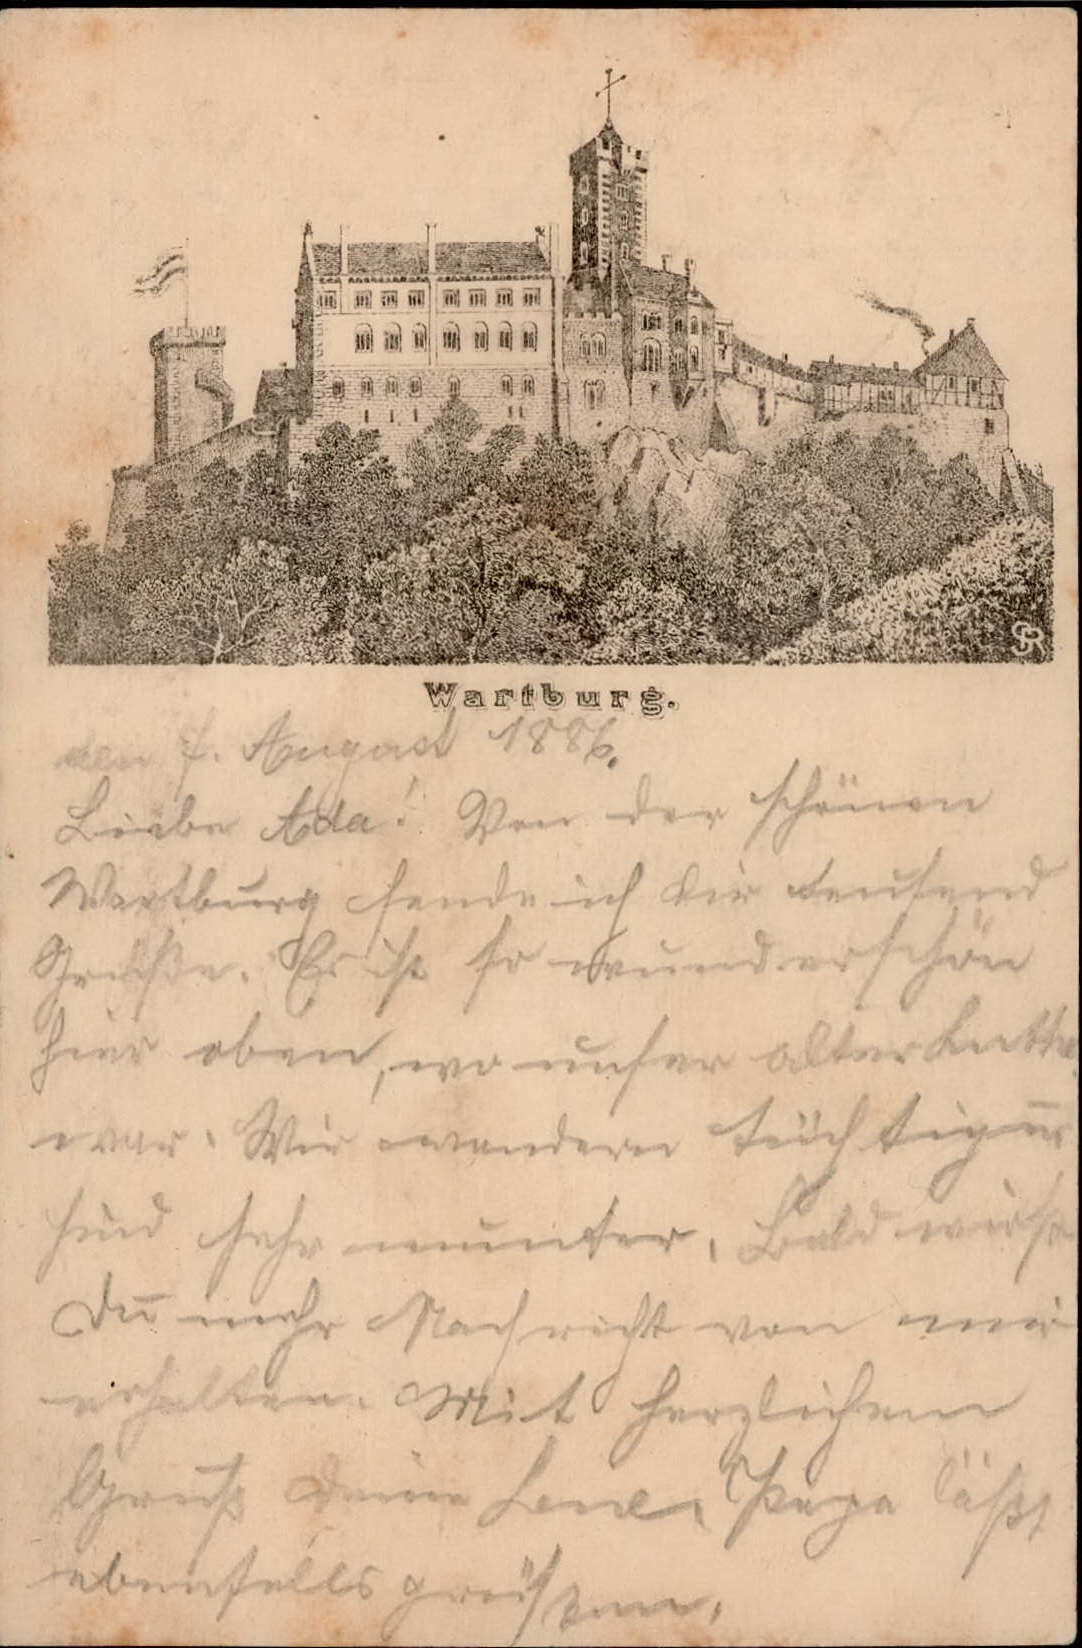 Wartburg.
den 7. August 1886.
Liebe Ada! Von der schönen
Wartburg sende ich Dir tausend
Grüße. Es ist so wunderschön
hier oben, wo unser alter Luther
war. Wir wandern tüchtig u.
sind sehr munter. Bald wirst
Du mehr Nachricht von mir
erhalten. Mit herzlichem
Gruß Deine Lene. Papa läßt
ebenfalls grüßen.
SR